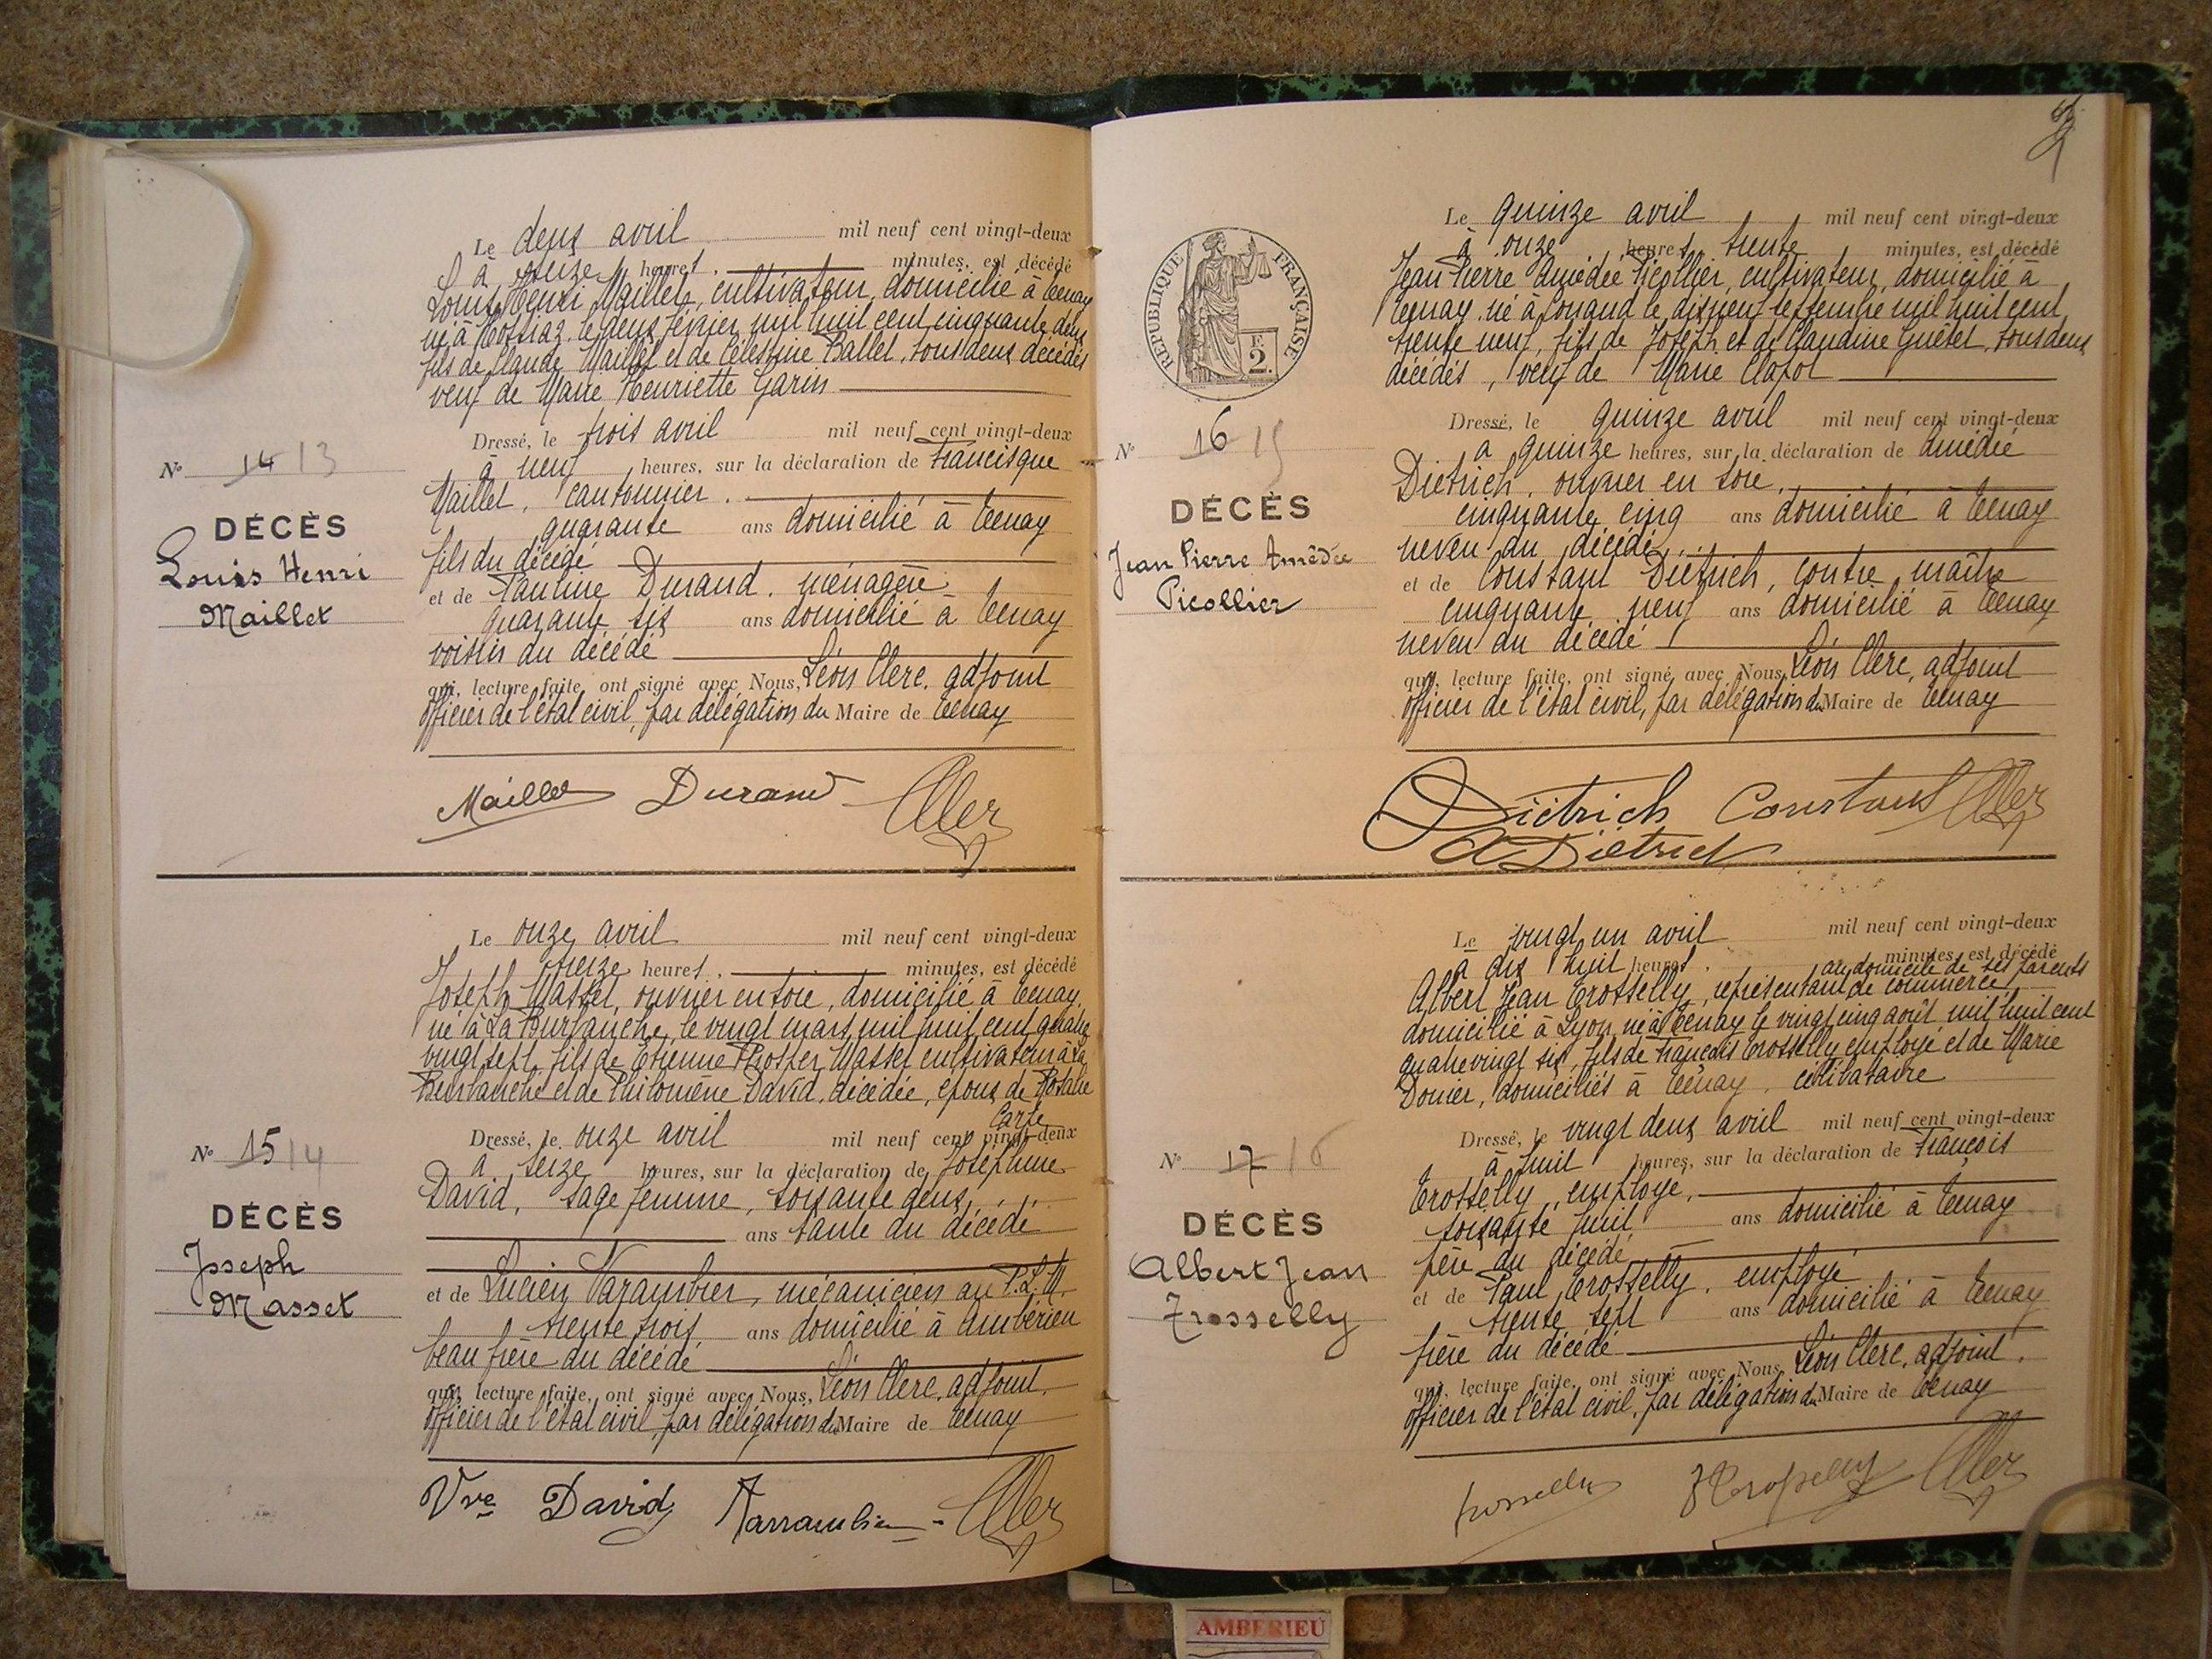 Le deux avril mil neuf cent vingt-deux
à heures, minutes, est décédé
Louis Henri Maillet, cultivateur, domicilié à Tenay
né à le deux février mil huit cent cinquante deux
fils de Claude Maillet et de Célestine Ballet, tous deux décédés
veuf de Marie Henriette Garin
Dressé, le trois avril mil neuf cent vingt-deux
à neuf heures, sur la déclaration de Francisque
Maillet, cantonnier.
quarante ans domicilié à Tenay
fils du décédé
et de Pauline Durand, ménagère
quarante six ans domicilié à Tenay
voisin du décédé
qui, lecture faite, ont signé avec Nous, Léon Clerc, adjoint
officier de l'état civil, par délégation du Maire de Tenay
Maillet Durand Clerc
N° 14 13
DÉCÈS
Louis Henri
Maillet
Le onze avril mil neuf cent vingt-deux
heures, minutes, est décédé
Joseph Masset, ouvrier en soie, domicilié à Tenay,
né à La Burbanche, le vingt mars mil huit cent quatre
vingt sept, fils de Etienne Prosper Masset cultivateur à La
Burbanche et de Philomène David, décédée, époux de Rosalie
Carte
Dressé, le onze avril mil neuf cent vingt-deux
à seize heures, sur la déclaration de Joséphine
David, sage femme, soixante deux,
ans tante du décédé
et de Lucien Varambier, mécanicien au P.L.M.
trente trois ans domicilié à Ambérieu
beau frère du décédé
qui, lecture faite, ont signé avec Nous, Léon Clerc, adjoint,
officier de l'état civil, par délégation du Maire de Tenay
Vve David Clerc
N° 15 14
DÉCÈS
Joseph
Masset
Le quinze avril mil neuf cent vingt-deux
à onze heures, trente minutes, est décédé
Jean Pierre Amédée Picollier, cultivateur, domicilié à
Tenay, né à le dix neuf septembre mil huit cent
trente neuf, fils de Joseph et de Claudine Guétet, tous deux
décédés, veuf de Marie Clapot
Dressé, le quinze avril mil neuf cent vingt-deux
à quinze heures, sur la déclaration de Amédée
Dietrich, ouvrier en soie,
cinquante cinq ans domicilié à Tenay
neveu du décédé,
et de Constant Dietrich, contre maître
cinquante neuf ans domicilié à Tenay
neveu du décédé
qui, lecture faite, ont signé avec Nous, Léon Clerc, adjoint
officier de l'état civil, par délégation du Maire de Tenay
Dietrich Constant Clerc
A Dietrich
RÉPUBLIQUE FRANÇAISE
F.
2.
N° 16 15
DÉCÈS
Jean Pierre Amédée
Picollier
Le vingt un avril mil neuf cent vingt-deux
à dix huit heures, minutes, est décédé
au domicile de ses parents
Albert Jean Trosselly, représentant de commerce,
domicilié à Lyon, né à Tenay le vingt cinq août mil huit cent
quatre vingt six, fils de François Trosselly employé et de Marie
Donier, domiciliés à Tenay, célibataire
Dressé, le vingt deux avril mil neuf cent vingt-deux
à huit heures, sur la déclaration de François
Trosselly, employé,
soixante huit ans domicilié à Tenay
père du décédé
et de Paul Trosselly, employé
trente sept ans domicilié à Tenay
frère du décédé
qui, lecture faite, ont signé avec Nous, Léon Clerc, adjoint,
officier de l'état civil, par délégation du Maire de Tenay
Trosselly Trosselly Clerc
N° 17 16
DÉCÈS
Albert Jean
Trosselly
AMBERIEU